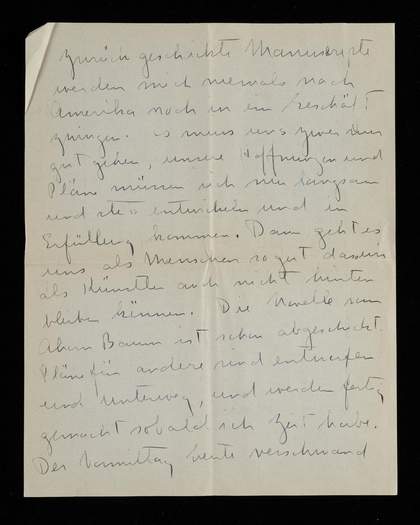 Zurück geschickte Manuskripte
werden mich niemals nach
Amerika noch in ein Geschäft
zwingen. Es muss uns zwei
gut gehen, unsere Hoffnungen und
Pläne müssen sich nur langsam
und entwickeln und in
Erfüllung kommen. Dann geht es
uns als Menschen so gut dass wir
als Künstler auch nicht hinten
bleiben können. Die Novelle vom
Baum ist schon abgeschickt.
Pläne für andere sind entworfen
und unterweg, und werden fertig
gemacht sobald ich Zeit habe.
Der Vormittag heute verschwand